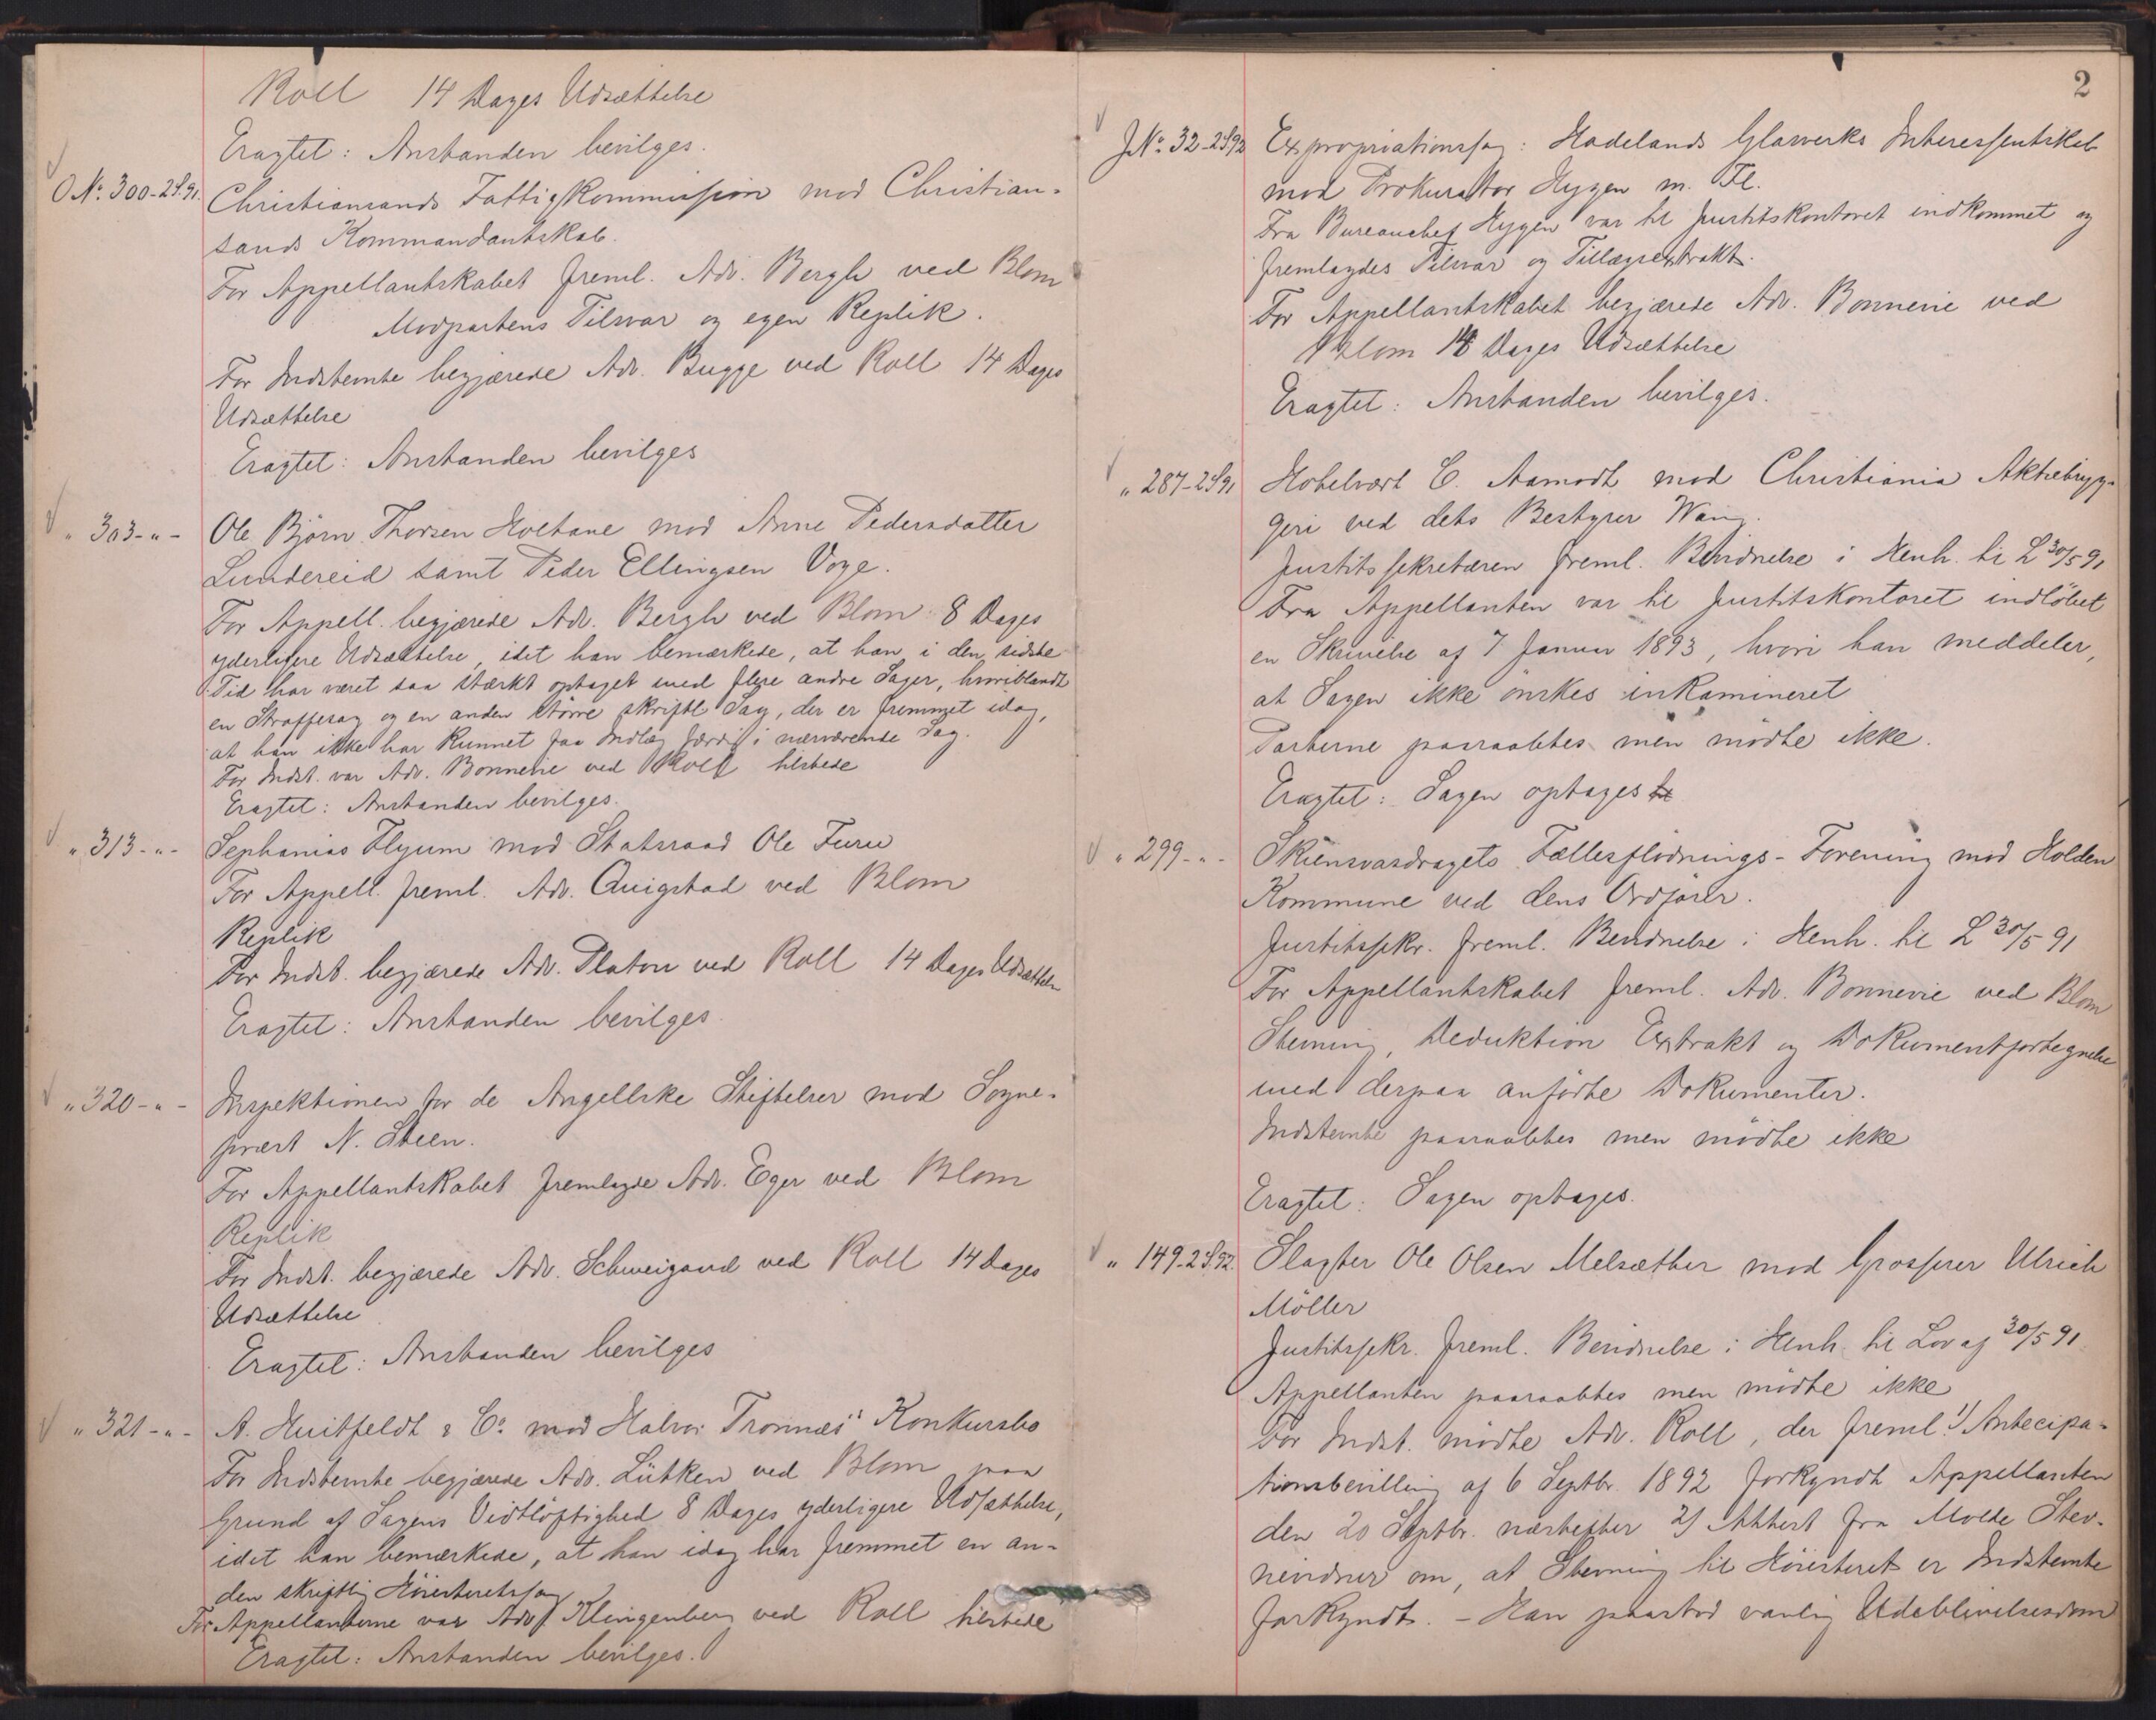 Roll 14 Dages Udsættelse
Eragtet: Anstanden bevilges.
O No. 300-2S91. Christiansands Fattigkommission mod Christian-
sands Kommandantskab.
For Appellantskabet freml. Adv. Bergh ved Blom
Modpartens Tilsvar og egen Replik.
For Indstevnte begjærede Adv. Bugge ved Roll 14 Dages
Udsættelse
Eragtet: Anstanden bevilges
" 303-"- Ole Björn Thorsen Holtane mod Anne Pedersdatter
Lundereid samt Peder Ellingsen Voge.
For Appell. begjærede Adv. Bergh ved Blom 8 Dages
yderligere Udsættelse, idet han bemærkede, at han i den sidste
Tid har været saa stærkt optaget med flere andre Sager, hvoriblandt
en Straffesag og en anden större skriftl Sag, der er fremmet idag,
at han ikke har kunnet faa Indlæg færdig i nærværende Sag.
For Indst. var Adv. Bonnevie ved Roll tilstede
Eragtet: Anstanden bevilges.
" 313-"- Sephanias Flyum mod Statsraad Ole Furu
For Appell. freml. Adv. Quigstad ved Blom
Replik
For Indst. begjærede Adv. Platou ved Roll 14 Dages Udsættelse
Eragtet: Anstanden bevilges
" 320-"- Inspektionen for de Angellske Stiftelser mod Sogne-
præst N. Steen.
For Appellantskabet fremlagde Adv. Eger ved Blom
Replik
For Indst. begjærede Adv. Schweigaard ved Roll 14 Dages
Udsættelse
Eragtet: Anstanden bevilges
" 321-"- A. Huitfeldt & Co. mod Halvor Tronnæs' Konkursbo
For Indstevnte begjærede Adv. Lütken ved Blom paa
Grund af Sagens Vidtlöftighed 8 Dages yderligere Udsættelse,
idet han bemærkede, at han idag har fremmet en an-
den skriftlig Höiesteretssag
For Appellanterne var Adv. Klingenberg ved Roll tilstede
Eragtet: Anstanden bevilges.
2
J No. 32-2S92 Expropriationssag: Hadelands Glasverks Interessentskab
mod Prokurator Hygen m. Fl.
Fra Bureauchef Hygen var til Justitskontoret indkommet og
fremlagdes Tilsvar og Tillægsextrakt.
For Appellantskabet begjærede Adv. Bonnevie ved
Blom 14 Dages Udsættelse
Eragtet: Anstanden bevilges.
" 287-2S91 Hotelvært C. Aamodt mod Christiania Aktiebryg-
geri ved dets Bestyrer Wang.
Justitssekretæren freml. Bevidnelse i Henh. til L 30/5 91
Fra Appellanten var til Justitskontoret indlöbet
en Skrivelse af 7 Januar 1893, hvori han meddeler,
at Sagen ikke önskes inkamineret
Parterne paaraabtes men mödte ikke.
Eragtet: Sagen optages
" 299-"- Skiensvasdragets Fællesflödnings-Forening mod Holden
Kommune ved dens Ordförer.
Justitssekr. freml. Bevidnelse i Henh. til L 30/5 91
For Appellantskabet freml. Adv. Bonnevie ved Blom
Stevning, Deduktion Extrakt og Dokumentfortegnelse
med derpaa anförte Dokumenter.
Indstevnte paaraabtes men mödte ikke
Eragtet: Sagen optages.
" 149-2S92. Slagter Ole Olsen Melsæther mod Grosserer Ulrich
Möller
Justitssekr. freml. Bevidnelse i Henh. til Lov af 30/5 91
Appellanten paaraabtes men mödte ikke
For Indst. mödte Adv. Roll, der freml. 1) Antecipa-
tionsbevilling af 6 Septbr. 1892 forkyndt Appellanten
den 20 Septbr. næstefter 2) Attest fra Molde Stev-
nevidner om, at Stevning til Höiesteret er Indstevnte
forkyndt. - Han paastod vanlig Udeblivelsesdom